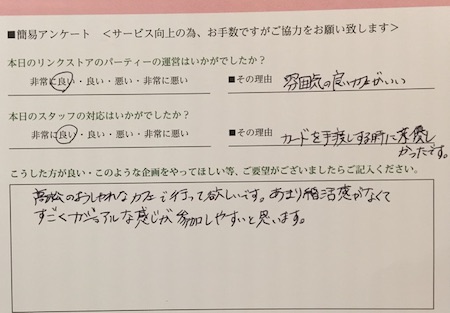 ■簡易アンケート ＜サービス向上の為、お手数ですがご協力をお願い致します＞
本日のリンクストアのパーティーの運営はいかがでしたか？
非常に良い・良い・悪い・非常に悪い ■その理由 雰囲気の良いカフェがいい
本日のスタッフの対応はいかがでしたか？
非常に良い・良い・悪い・非常に悪い ■その理由 カードを手渡しする時に優し
かったです。
こうした方が良い・このような企画をやってほしい等、ご要望がございましたらご記入ください。
高松のおしゃれなカフェで行って欲しいです。あまり婚活感がなくて
すごくカジュアルな感じが参加しやすいと思います。